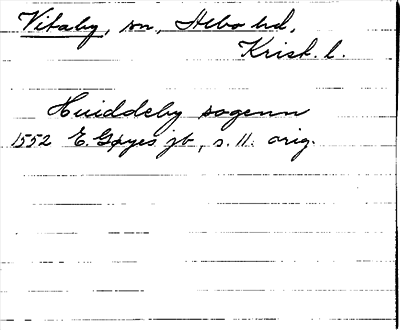 Vitaby, sn, Albo hd,
Krist. l.
Huiddeby sogenn
1552 E. Gøyes jb, s. 11. orig.